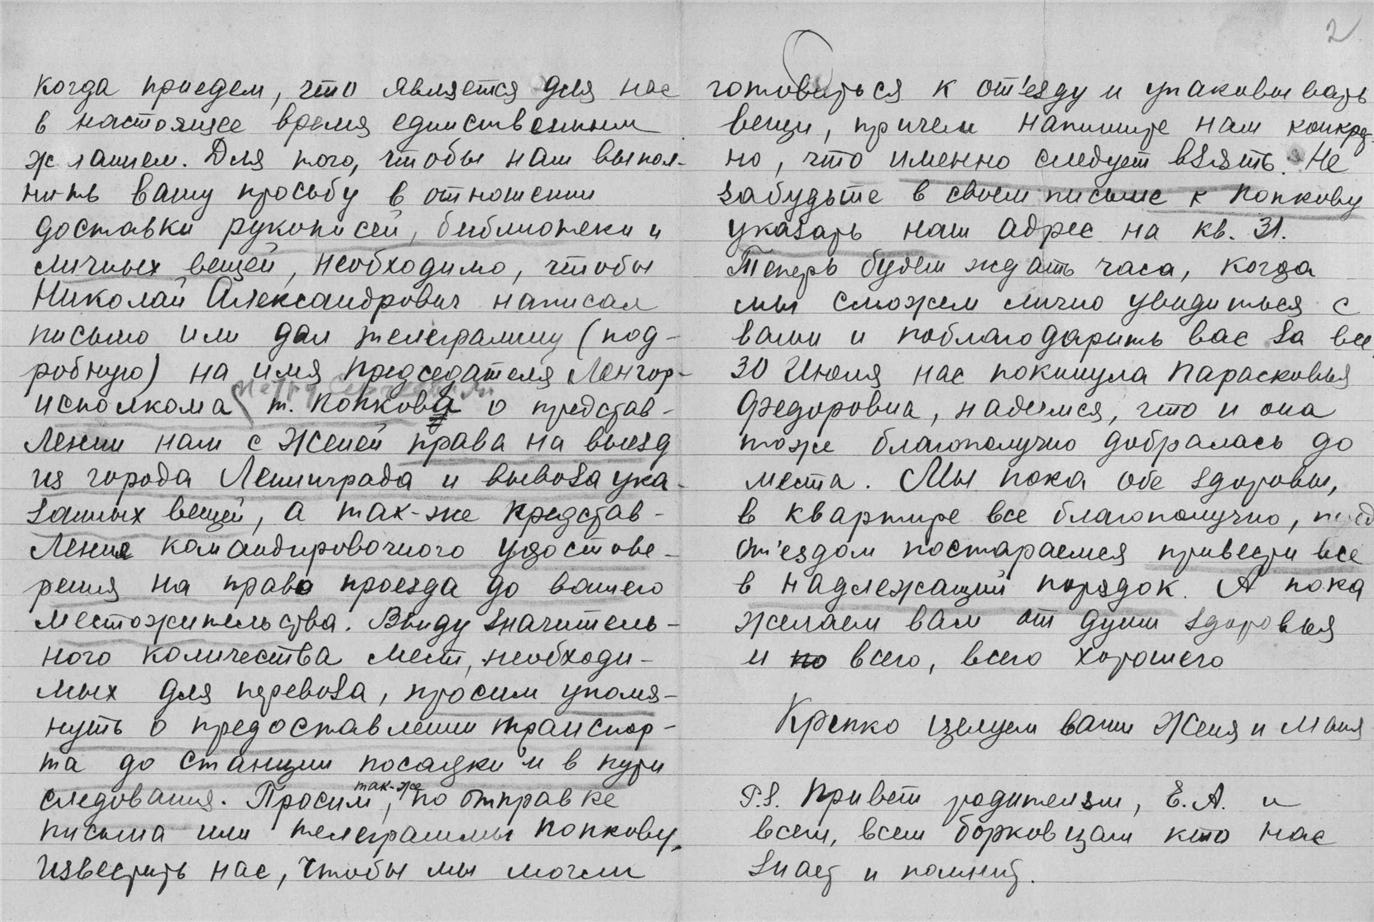 когда приедем, что является для нас
в настоящее время единственным
желанием. Для того, чтобы нам выпол-
нить вашу просьбу в отношении
доставки рукописей, библиотеки и
личных вещей, необходимо, чтобы
Николай Александрович написал
письмо или дал телеграмму (под-
робную) на имя председателя Ленгор-
Петру Сергеевичу
исполкома т. Попкова о представ-
лении нам с Женей права на выезд
из города Ленинграда и вывоза ука-
занных вещей, а так-же представ-
ление командировочного удостове-
рения на право проезда до вашего
местожительства. Ввиду значитель-
ного количества мест, необходи-
мых для перевоза, просим упомя-
нуть о предоставлении транспор-
та до станции посадки и в пути
следования. Просим, так-же по отправке
письма или телеграммы Попкову,
известить нас, чтобы мы могли
2
готовиться к от'езду и упаковывать
вещи, причем напишите нам конкрет-
но, что именно следует взять. Не
забудьте в своем письме к Попкову
указать наш адрес на кв. 31.
Теперь будем ждать часа, когда
мы сможем лично увидиться с
вами и поблагодарить вас за все
30 Июля нас покинула Парасковья
Федоровна, надеемся, что и она
тоже благополучно добралась до
места. Мы пока обе здоровы,
в квартире все благополучно, перед
от'ездом постараемся привести все
в надлежащий порядок. А пока
желаем вам от души здоровья
и по всего, всего хорошего
Крепко целуем ваши Женя и Маня
P.S. Привет родителям, Е.А. и
всем, всем борковцам кто нас
знает и помнит.